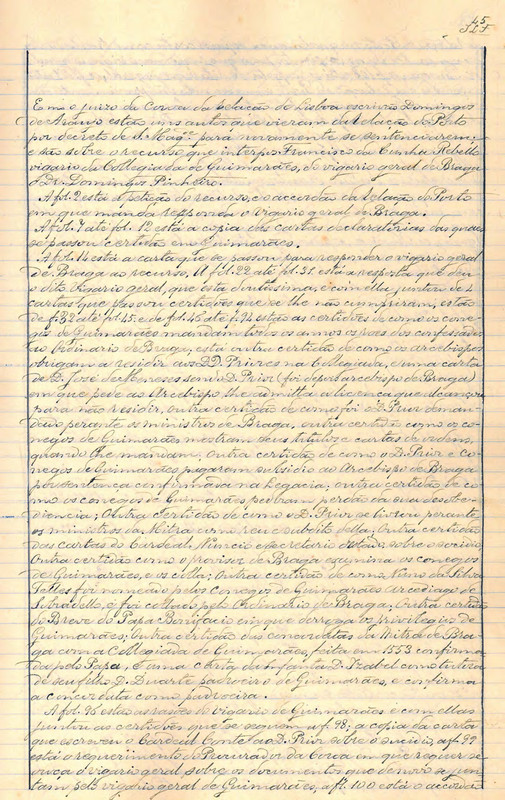 45
Em o juizo da Coroa da Relação de Lisboa escrivão Domingos
de Araujo estão uns autos que vieram da Relação do Porto
por decreto de S. Mag.de para novamente se sentenciarem;
e são sobre o recurso que interpos Francisco da Cunha Rebello
vigario da Collegiada de Guimarães, do vigario geral de Braga
o Dr. Domingos Pinheiro.
A fol. 2 está a petição do recurso, e o accordão da Relação do Porto
em que manda responda o vigario geral de Braga.
A fol. 7 até fol. 12 está a copia das cartas declaratorias das quaes
se passou certidão em Guimarães.
A fol. 14 está a carta que se passou para responder o vigario geral
de Braga ao recurso. A fl. 22 até pl. 31 está a resposta que deu
o dito Vigario geral, que está doutissima, e com ella juntou de 4
cartas que passou certidões que se lhe não cumpriram, estão
de f. 32 até pl. 45; e de fol. 45 até f. 94 estão as certidões de como os cone-
gos de Guimarães mandam todos os annos os roes dos confessados
ao Ordinario de Braga, está outra certidão de como os arcebispos
obrigam a residir aos DD. Priores na Collegiada, e uma carta
de D. José de Meneses sendo D. Prior (foi depois arcebispo de Braga)
em que pede ao Arcebispo lhe admitta a licença que alcançou
para não residir, outra certidão de como foi o D. Prior deman-
dado perante os ministros de Braga, outra certidão como os co-
negos de Guimarães mostram seus titulos e cartas de ordens,
quando lhe mandam; outra certidão de como o D. Prior e Co-
negos de Guimarães pagaram subsidio ao Arcebispo de Braga
por sentença confirmada na Legacia; outra certidão de co-
mo os conegos de Guimarães pediram perdão da sua desobe-
diencia; Outra certidão de como o D. Prior se livrou perante
os ministros da Mitra como reu e subdito della; Outra certidão
das cartas do Cardeal Nuncio e secretario sobre o
Outra certidão como o provisor de Braga examina os conegos
de Guimarães, e os colla; Outra certidão de como Nuno da Silva
Telles foi nomeado pelos Conegos de Guimarães Arcediago de
Sobradello, e foi collado pelo Ordinario de Braga; Outra certidão
do Breve do Papa Bonifacio em que derroga os privilegios de
Guimarães; Outra certidão das concordatas da Mitra de Bra-
ga com a Collegiada de Guimarães, feita em 1553 confirma-
da pelo Papa, e uma carta da infanta D. Izabel como tutora
de seu filho D. Duarte padroeiro de Guimarães, e confirma
a concordata como padroeira.
A fol. 95 estão as rasões do vigario de Guimarães e com ellas
juntou as certidões que se seguem a f. 98; a copia da carta
que escreveu o Cardeal Conte ao D. Prior sobre o a f. 99
está o requerimento do Procurador da Coroa em que requer se
ouça o vigario geral sobre os documentos que de novo se jun-
tam pelo vigario geral de Guimarães, a fl. 100 está o accordão